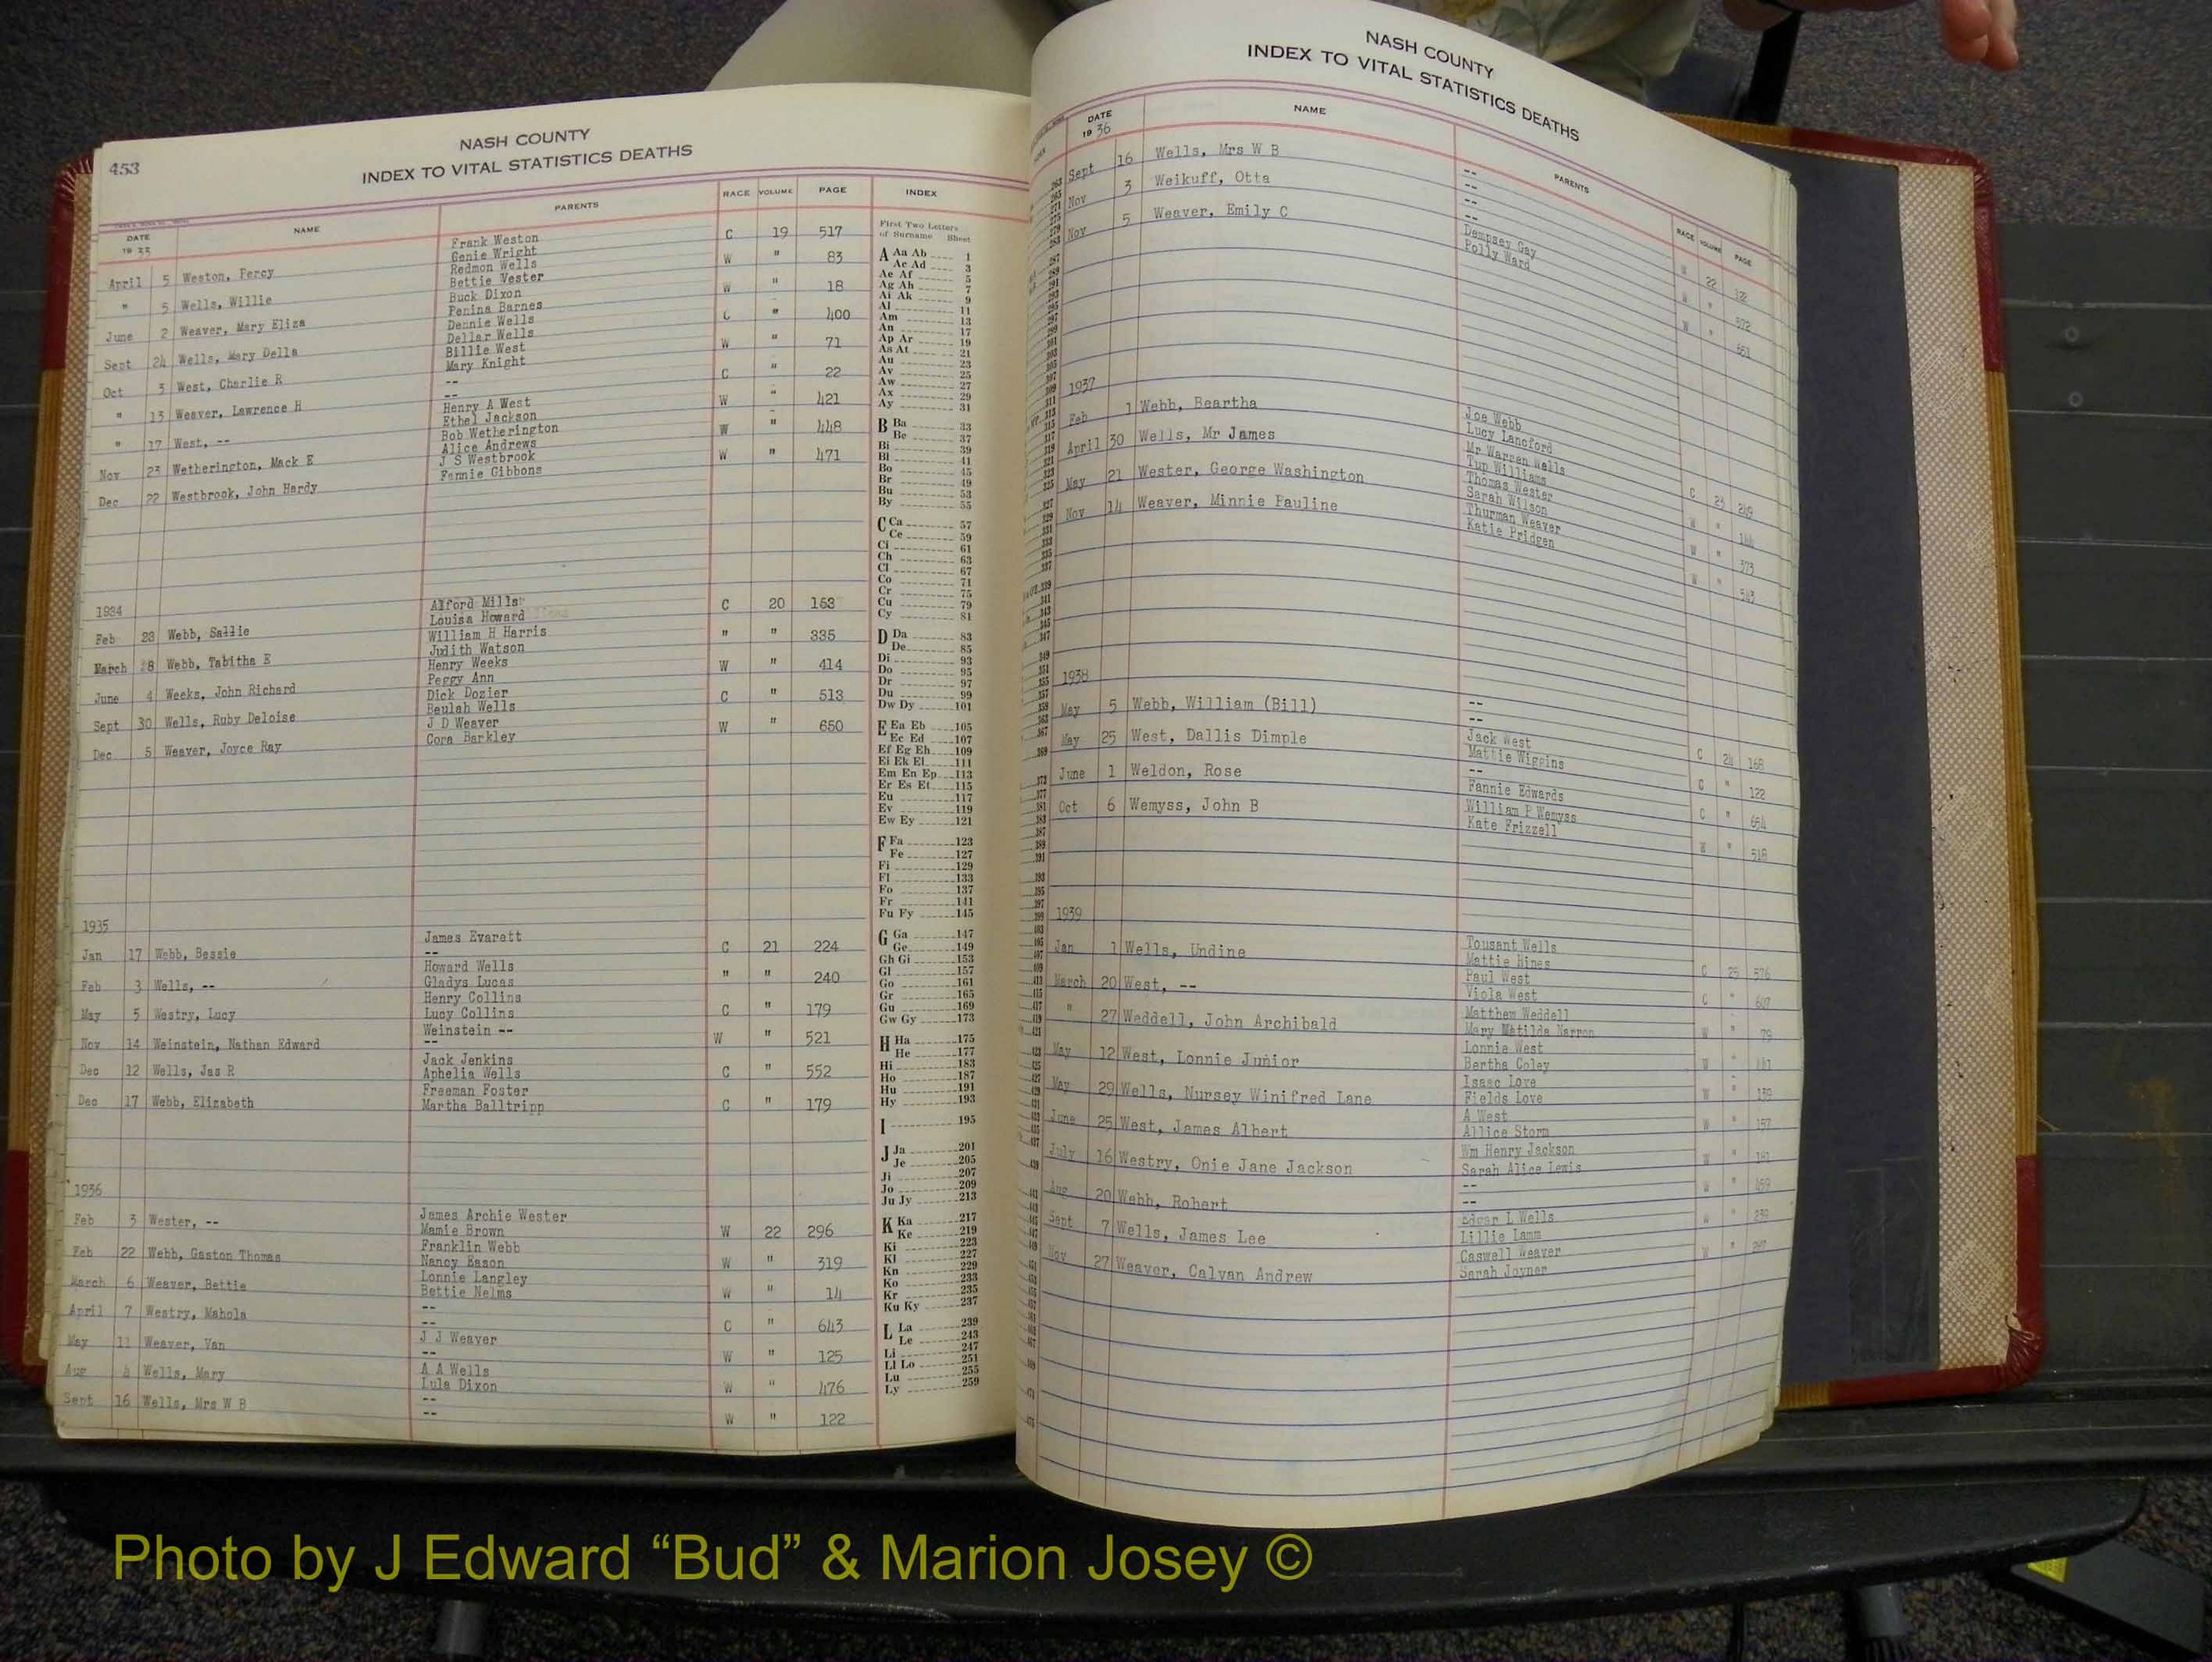 453
NASH COUNTY
INDEX TO VITAL STATISTICS DEATHS
DATE NAME PARENTS RACE VOLUME PAGE INDEX
19 33
April 5 Weston, Percy Frank Weston C 19 517
Genie Wright
" 5 Wells, Willie Redmon Wells W " 83
Bettie Vester
June 2 Weaver, Mary Eliza Buck Dixon W " 18
Penina Barnes
Sept 24 Wells, Mary Della Dennie Wells C " 400
Dellar Wells
Oct 3 West, Charlie R Billie West W " 71
Mary Knight
" 13 Weaver, Lawrence H -- C " 22
--
" 17 West, -- Henry A West W " 421
Ethel Jackson
Nov 23 Wetherington, Mack E Bob Wetherington W " 448
Alice Andrews
Dec 22 Westbrook, John Hardy J S Westbrook W " 471
Fannie Gibbons
1934
Feb 23 Webb, Sallie Alford Mills C 20 163
Louisa Howard
March 8 Webb, Tabitha E William H Harris " " 335
Judith Watson
June 4 Weeks, John Richard Henry Weeks W " 414
Peggy Ann
Sept 30 Wells, Ruby Deloise Dick Dozier C " 513
Beulah Wells
Dec 5 Weaver, Joyce Ray J D Weaver W " 650
Cora Barkley
1935
Jan 17 Webb, Bessie James Evarett C 21 224
--
Feb 3 Wells, -- Howard Wells " " 240
Gladys Lucas
May 5 Westry, Lucy Henry Collins C " 179
Lucy Collins
Nov 14 Weinstein, Nathan Edward Weinstein -- W " 521
--
Dec 12 Wells, Jas R Jack Jenkins C " 552
Aphelia Wells
Dec 17 Webb, Elizabeth Freeman Foster C " 179
Martha Balltripp
1936
Feb 3 Wester, -- James Archie Wester W 22 296
Mamie Brown
Feb 22 Webb, Gaston Thomas Franklin Webb W " 319
Nancy Eason
March 6 Weaver, Bettie Lonnie Langley W " 14
Bettie Nelms
April 7 Westry, Mahola -- C " 643
--
May 11 Weaver, Van J J Weaver W " 125
--
Aug 4 Wells, Mary A A Wells W " 476
Lula Dixon
Sept 16 Wells, Mrs W B -- W " 122
--
First Two Letters
of Surname Sheet
A Aa Ab 1
Ac Ad 3
Ae Af 5
Ag Ah 7
Ai Ak 9
Al 11
Am 13
An 17
Ap Ar 19
As At 21
Au 23
Av 25
Aw 27
Ax 29
Ay 31
B Ba 33
Be 37
Bi 39
Bl 41
Bo 45
Br 49
Bu 53
By 55
C Ca 57
Ce 59
Ci 61
Ch 63
Cl 67
Co 71
Cr 75
Cu 79
Cy 81
D Da 83
De 85
Di 93
Do 95
Dr 97
Du 99
Dw Dy 101
E Ea Eb 105
Ec Ed 107
Ef Eg Eh 109
Ei Ek El 111
Em En Ep 113
Er Es Et 115
Eu 117
Ev 119
Ew Ey 121
F Fa 123
Fe 127
Fi 129
Fl 133
Fo 137
Fr 141
Fu Fy 145
G Ga 147
Ge 149
Gh Gi 153
Gl 157
Go 161
Gr 165
Gu 169
Gw Gy 173
H Ha 175
He 177
Hi 183
Ho 187
Hu 191
Hy 193
I 195
J Ja 201
Je 205
Ji 207
Jo 209
Ju Jy 213
K Ka 217
Ke 219
Ki 223
Kl 227
Kn 229
Ko 233
Kr 235
Ku Ky 237
L La 239
Le 243
Li 247
Ll Lo 251
Lu 255
Ly 259
NASH COUNTY
INDEX TO VITAL STATISTICS DEATHS
DATE NAME PARENTS RACE VOLUME PAGE
19 36
Sept 16 Wells, Mrs W B -- W 22 122
--
Nov 3 Weikuff, Otta -- W " 572
--
Nov 5 Weaver, Emily C Dempsey Gay W " 661
Polly Ward
1937
Feb 1 Webb, Beartha Joe Webb C 23 249
Lucy Langford
April 30 Wells, Mr James Mr Warren Wells W " 144
Tup Williams
May 21 Wester, George Washington Thomas Wester W " 373
Sarah Wilson
Nov 14 Weaver, Minnie Pauline Thurman Weaver W " 543
Katie Pridgen
1938
May 5 Webb, William (Bill) -- C 24 168
--
May 25 West, Dallis Dimple Jack West C " 122
Mattie Wiggins
June 1 Weldon, Rose -- C " 654
Fannie Edwards
Oct 6 Wemyss, John B William P Wemyss W " 518
Kate Frizzell
1939
Jan 1 Wells, Undine Tousant Wells C 25 576
Mattie Hines
March 20 West, -- Paul West C " 607
Viola West
" 27 Weddell, John Archibald Matthew Weddell W " 79
Mary Matilda Narron
May 12 West, Lonnie Junior Lonnie West W "
Bertha Coley
May 29 Wells, Nursey Winifred Lane Isaac Love W " 139
Fields Love
June 25 West, James Albert A West W " 157
Allice Storm
July 16 Westry, Onie Jane Jackson Wm Henry Jackson W "
Sarah Alice Lewis
Aug 20 Webb, Robert -- W " 459
--
Sept 7 Wells, James Lee Edgar L Wells W " 239
Lillie Lamm
Nov 27 Weaver, Calvan Andrew Caswell Weaver W "
Sarah Joyner
Photo by J Edward “Bud” & Marion Josey ©